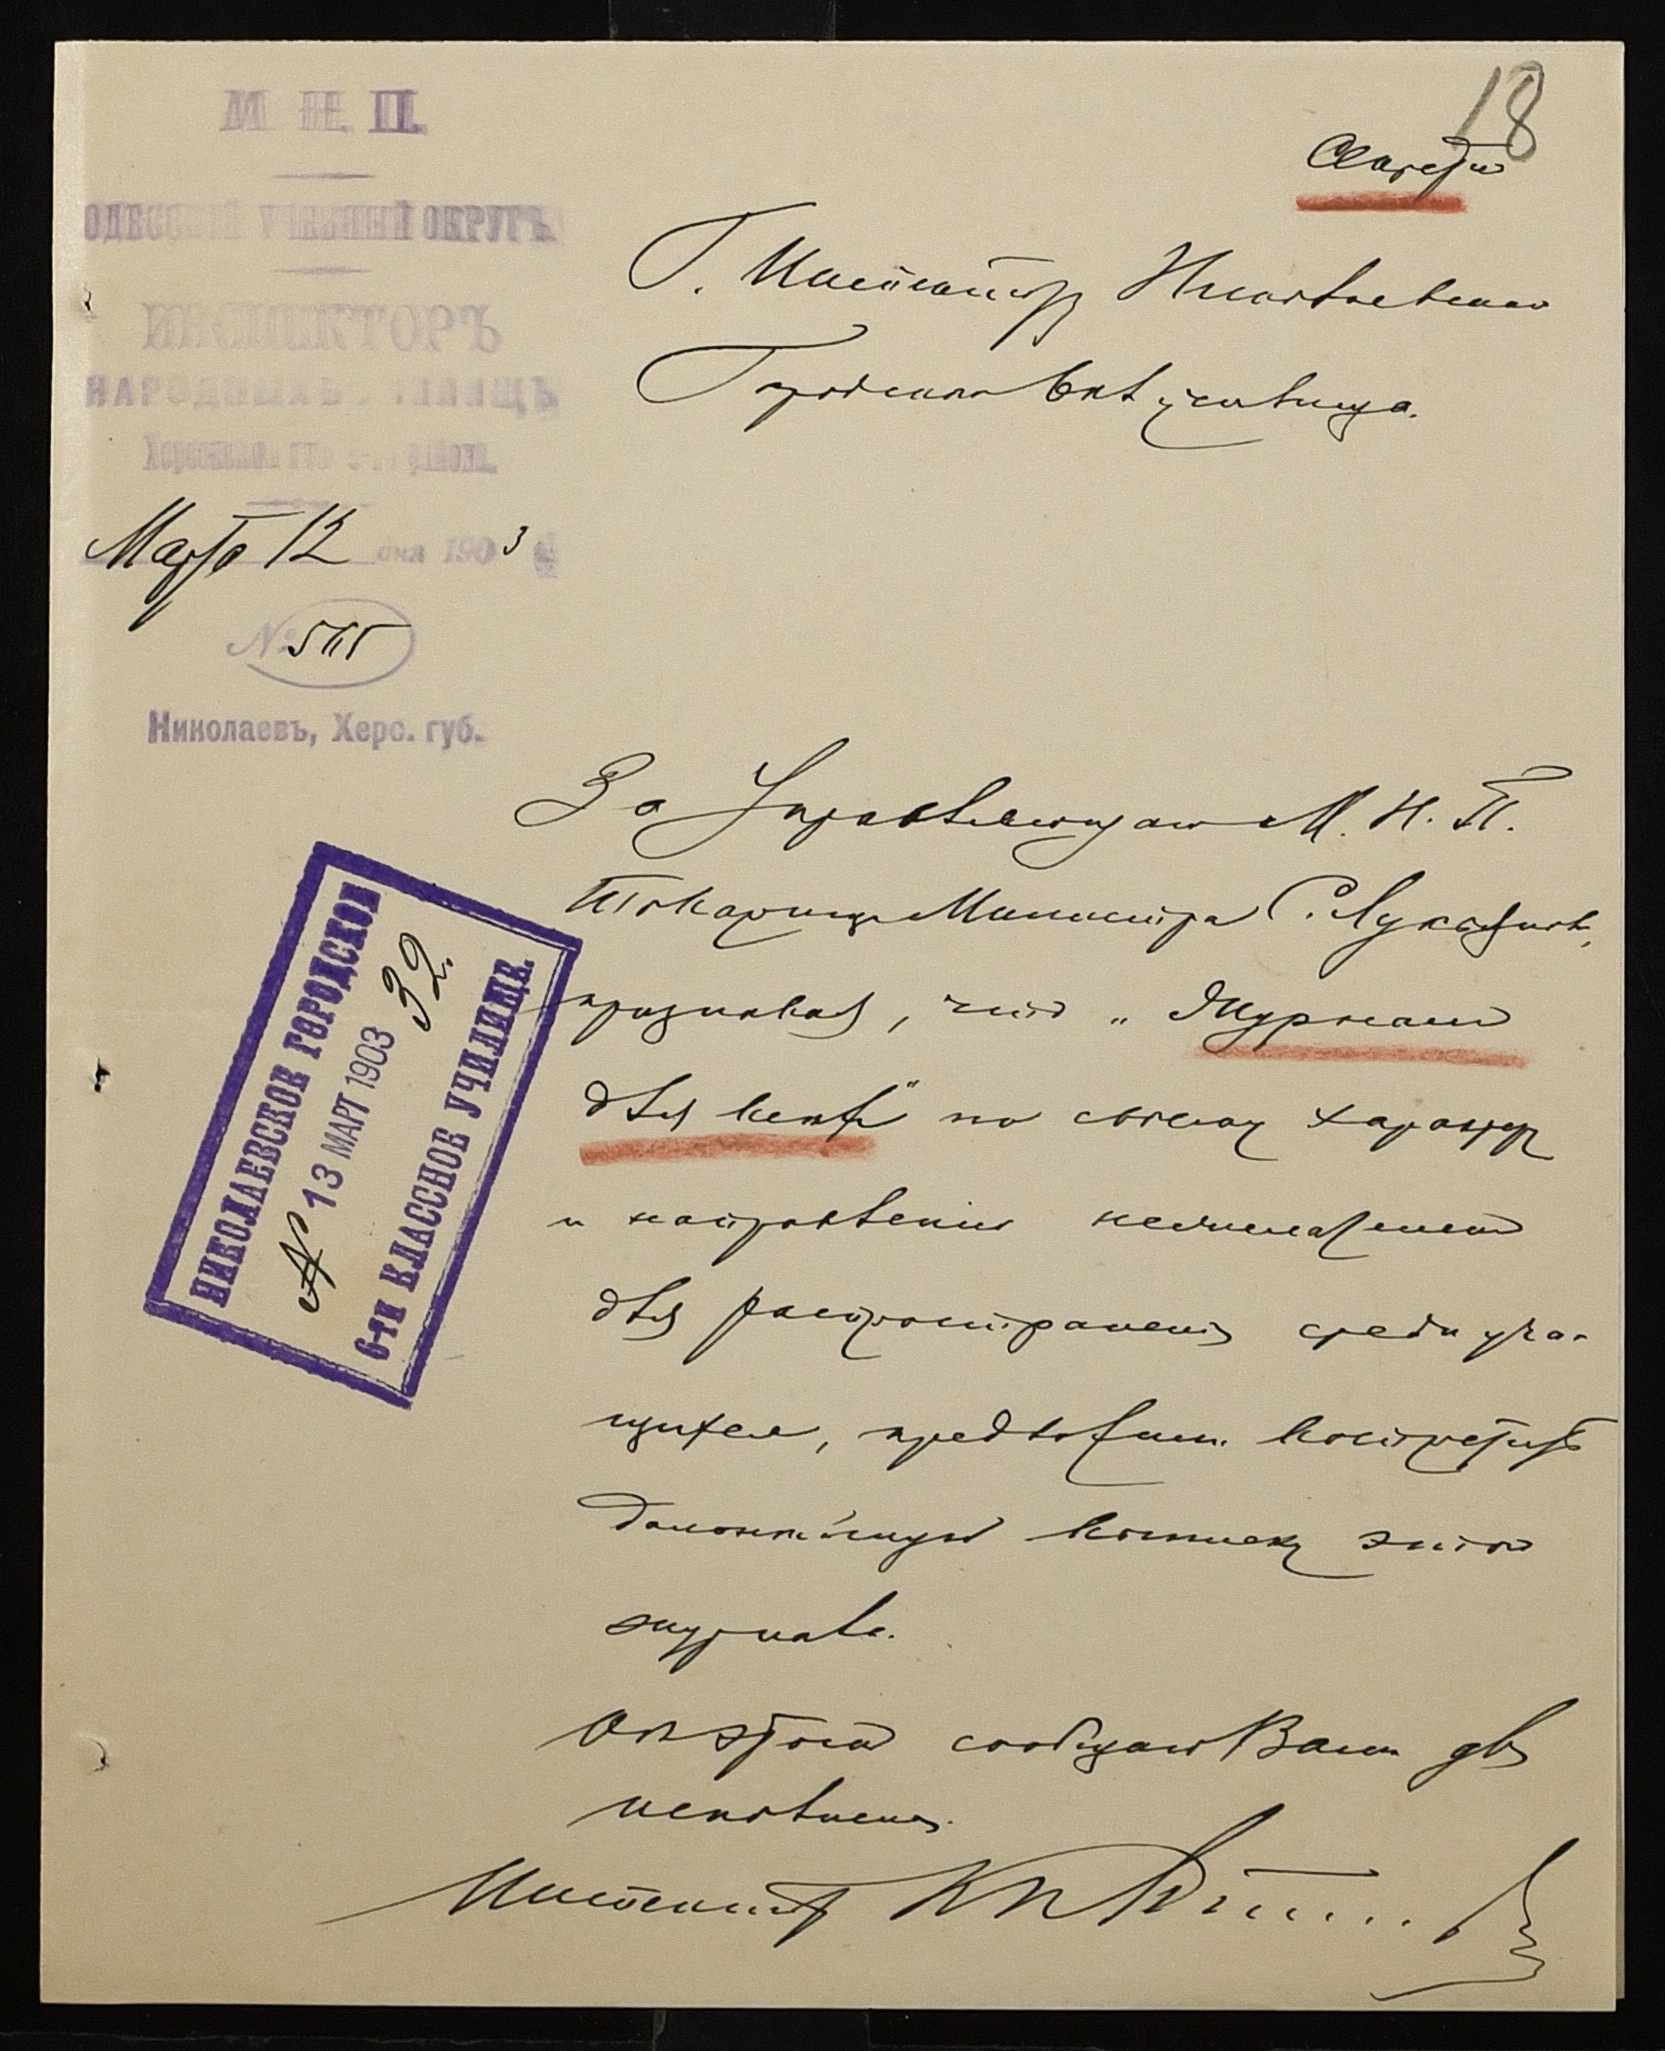 18
М. Н. П.
Секретно
ОДЕССКІЙ УЧЕБНЫЙ ОКРУГЪ.
ИНСПЕКТОРЪ
НАРОДНЫХЪ УЧИЛИЩЪ
Херсонской губ. района.
Марта 12 дня 1903 г.
№
Николаевъ, Херс. губ.
Г. Инспектору Николаевскаго
Городского 6 кл училища.
НИКОЛАЕВСКОЕ ГОРОДСКОЕ
№ 13 МАРТ 1903 32.
6-ТИ КЛАССНОЕ УЧИЛИЩЕ.
За Управляющаго М. Н. П.
Товарищ Министра С. Лукьянов,
признавая, что „Журнал
для всех" по своему характеру
и направлению нежелателен
для распространения среди уча-
щихся, предложил воспретить
дальнейшую выписку этого
журнала.
Об этом сообщаю Вам для
исполнения.
Инспектор